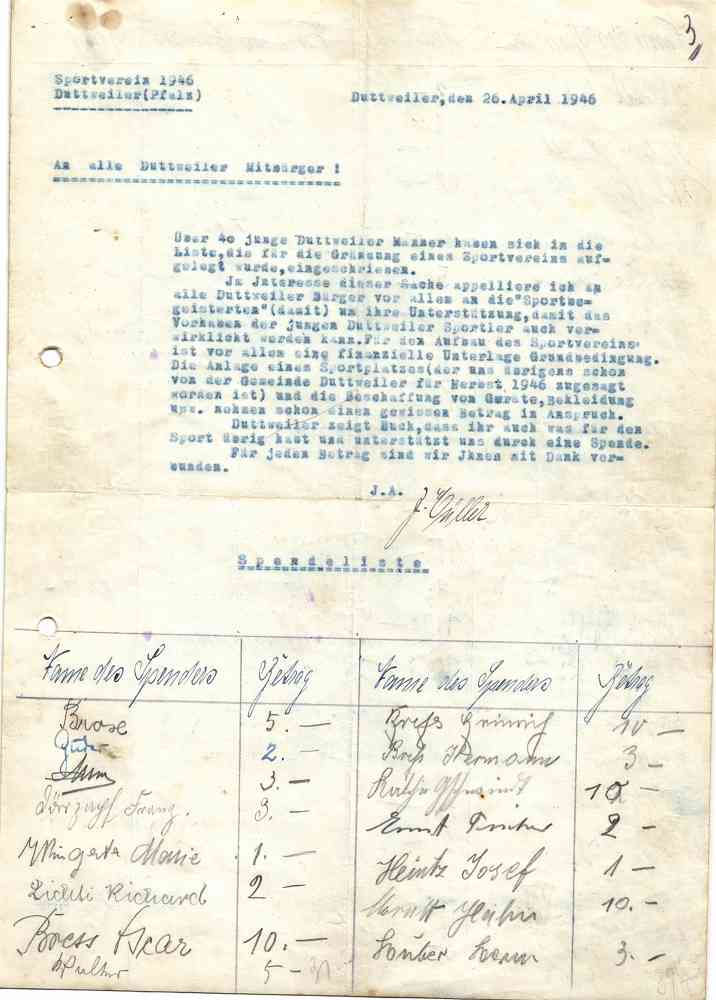 3
Sportverein 1946
Duttweiler(Pfalz)
Duttweiler,den 26.April 1946
An alle Duttweiler Mitbürger !
Über 4o junge Duttweiler Männer haben sich in die
Liste,die für die Gründung eines Sportvereins auf-
gelegt wurde,eingeschrieben.
Jm Jnteresse dieser Sache appelliere ich an
alle Duttweiler Bürger vor allem an die"Sportbe-
geisterten"(damit) um ihre Unterstützung,damit das
Vorhaben der jungen Duttweiler Sportler auch ver-
wirklicht werden kann.Für den Aufbau des Sportvereins
ist vor allem eine finanzielle Unterlage Grundbedingung.
Die Anlage eines Sportplatzes(der uns übrigens schon
von der Gemeinde Duttweiler für Herbst 1946 zugesagt
worden ist) und die Beschaffung von Geräte,Bekleidung
usw. nehmen schon einen gewissen Betrag in Anspruch.
Duttweiler zeigt Euch,dass ihr auch was für den
Sport übrig habt und unterstützt uns durch eine Spende.
Für jeden Betrag sind wir Jhnen mit Dank ver-
bunden.
J.A.
Spendeliste
Name des Spenders Betrag Name des Spenders Betrag
Brose 5.— Heinrich 10 —
2.— Hermann 3 —
3.— 10 —
Franz. 3.— Ernst 2 —
Marie 1.— Heintz Josef 1 —
Richard 2 — 10.—
Boess Oskar 10.— Hauber 3.—
Walter 5 —